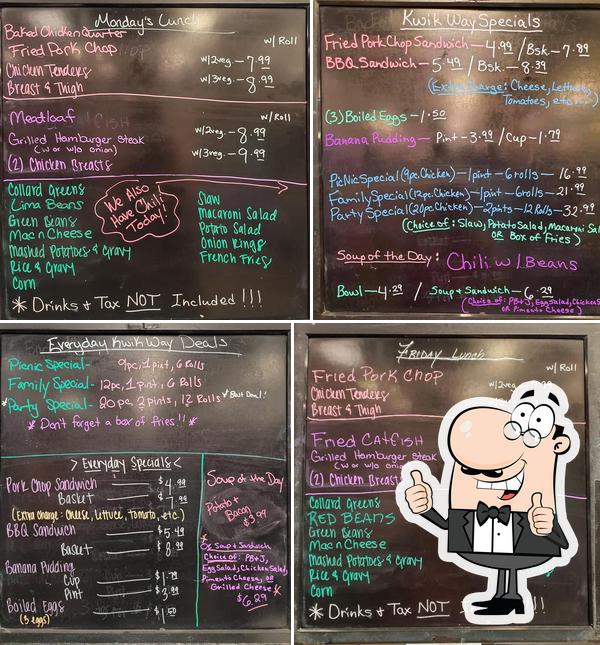 Monday's Lunch
Baked Chicken Quarter
Fried Pork Chop
Chicken Tenders
Breast & Thigh
w/ Roll
w/2veg. - 7.99
w/3veg. - 8.99
Meatloaf
Grilled Hamburger Steak
(w or w/o onion)
(2) Chicken Breasts
w/Roll
w/2veg. - 8.99
w/3veg. - 9.99
Collard Greens
Lima Beans
Green Beans
Mac n Cheese
Mashed Potatoes & Gravy
Rice & Gravy
Corn
We Also
Have Chili
Today!
Slaw
Macaroni Salad
Potato Salad
Onion Rings
French Fries
* Drinks & Tax NOT Included !!!
Kwik Way Specials
Fried Pork Chop Sandwich - 4.99 / Bsk. - 7.89
BBQ Sandwich - 5.49 / Bsk. - 8.39
(Extra Charge: Cheese, Lettuce,
Tomatoes, etc....)
(3) Boiled Eggs - 1.50
Banana Pudding - Pint - 3.99 / Cup - 1.79
PicNic Special (9pc. Chicken) - 1pint - 6rolls - 16.99
Family Special (12pc. Chicken) - 1pint - 6rolls - 21.99
Party Special (20pc. Chicken) - 2pints - 12 Rolls - 32.99
(Choice of: Slaw, Potato Salad, Macaroni Sal
OR Box of Fries)
Soup of the Day: Chili w/ Beans
Bowl - 4.29 / Soup & Sandwich - 6.29
(Choice of: PB+J, Egg Salad, Chicken S
OR Pimento Cheese)
Everyday Kwik Way Deals
Picnic Special- 9pc, 1 pint, 6 Rolls
Family Special- 12pc, 1 pint, 6 Rolls
* Party Special- 20 pc. 2 pints, 12 Rolls * Best Deal!
* Don't forget a box of fries!! *
> Everyday Specials <
Pork Chop Sandwich $4.99
Basket $7.99
(Extra charge: Cheese, lettuce, Tomato, etc.)
BBQ Sandwich $5.49
Basket $8.99
Banana Pudding
Cup $1.79
Pint $3.99
Boiled Eggs $1.50
(3 eggs)
Soup of the Day
Potato &
Bacon
$3.99
Or Soup & Sandwich
Choice of: PB+J,
Egg Salad, Chicken Salad,
Pimento Cheese, or
Grilled Cheese
$6.29
Friday Lunch
Fried Pork Chop
Chicken Tenders
Breast & Thigh
w/ Roll
w/2veg.
Fried Catfish
Grilled Hamburger Steak
(w or w/o onion)
(2) Chicken Breast
Collard Greens
Red Beans
Green Beans
Mac n Cheese
Mashed Potatoes & Gravy
Rice & Gravy
Corn
* Drinks & Tax NOT !!